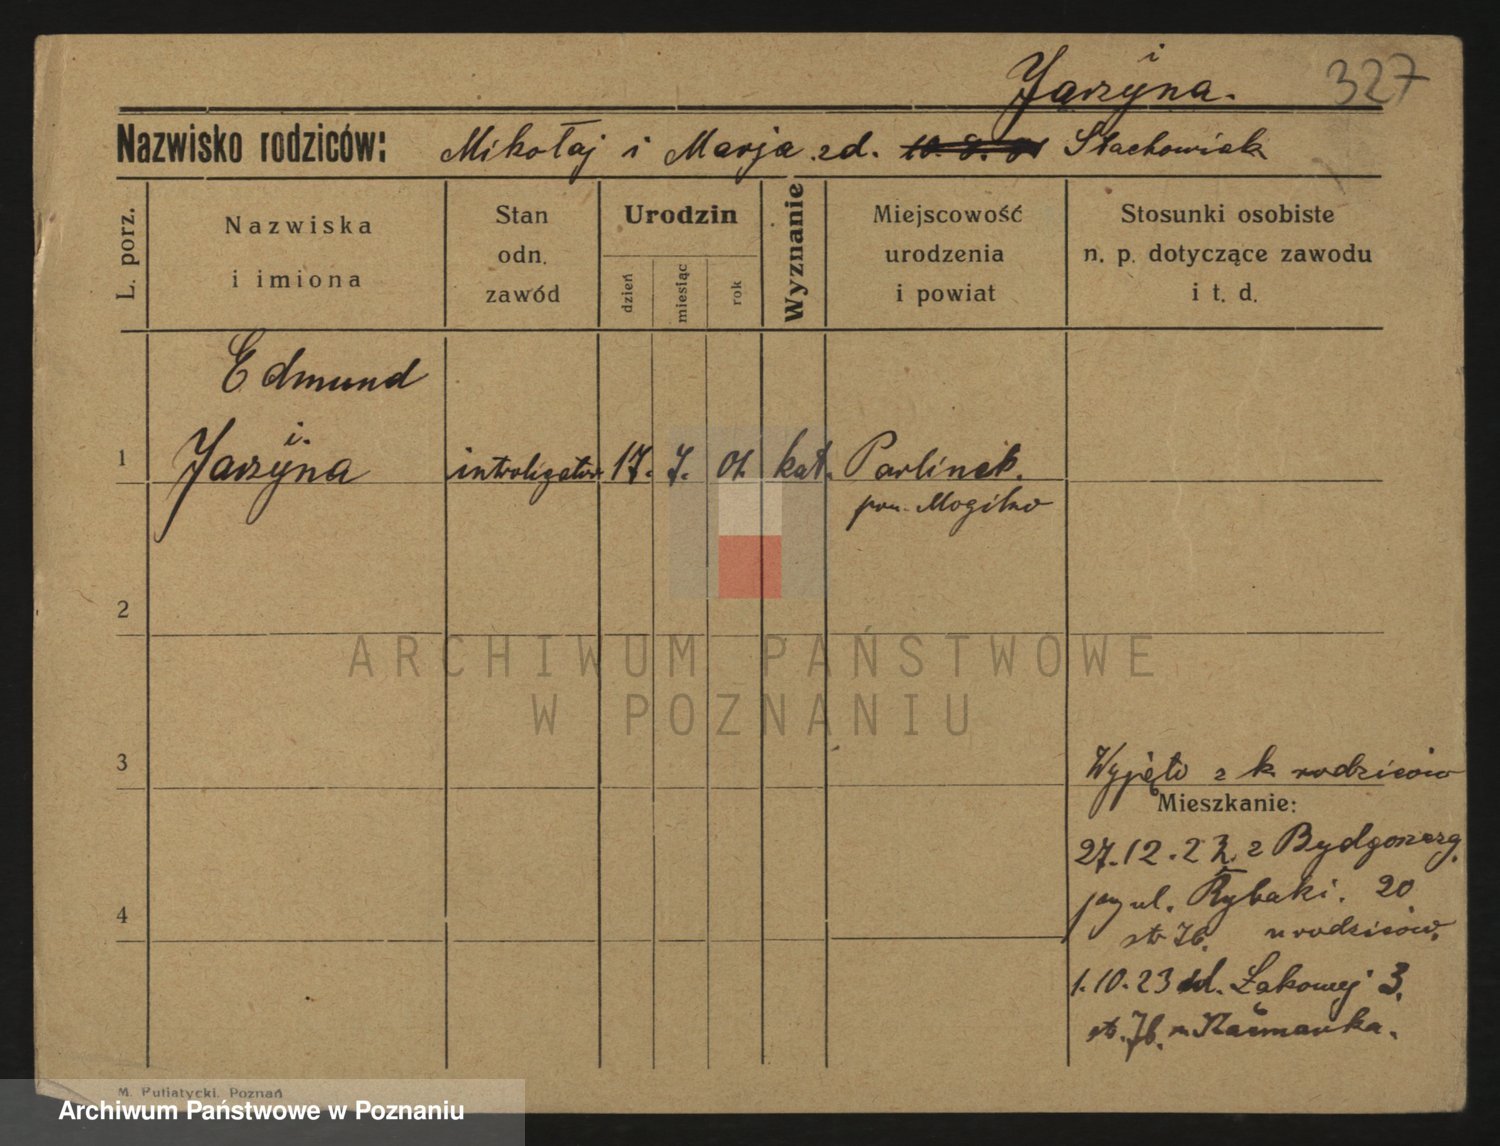 Jarzyna.
i
327
Nazwisko rodziców: Mikołaj i Marja zd. Stachowiak
L. porz.
Nazwiska
i imiona
Stan
odn.
zawód
Urodzin
dzień
miesiąc
rok
Wyznanie
Miejscowość
urodzenia
i powiat
Stosunki osobiste
n. p. dotyczące zawodu
i t. d.
Edmund
i.
1 Jarzyna introligator 17. 7. 01. kat. Parlinek.
pow. Mogilno
2
ARCHIWUM PAŃSTWOWE
W POZNANIU
3
Wyjęto z k. rodziców
Mieszkanie:
27.12.22 z Bydgoszczy
przy ul. Rybaki. 20
4
u rodziców.
1.10.23 ul. Łąkowej 3.
M. Putiatycki, Poznań
Archiwum Państwowe w Poznaniu